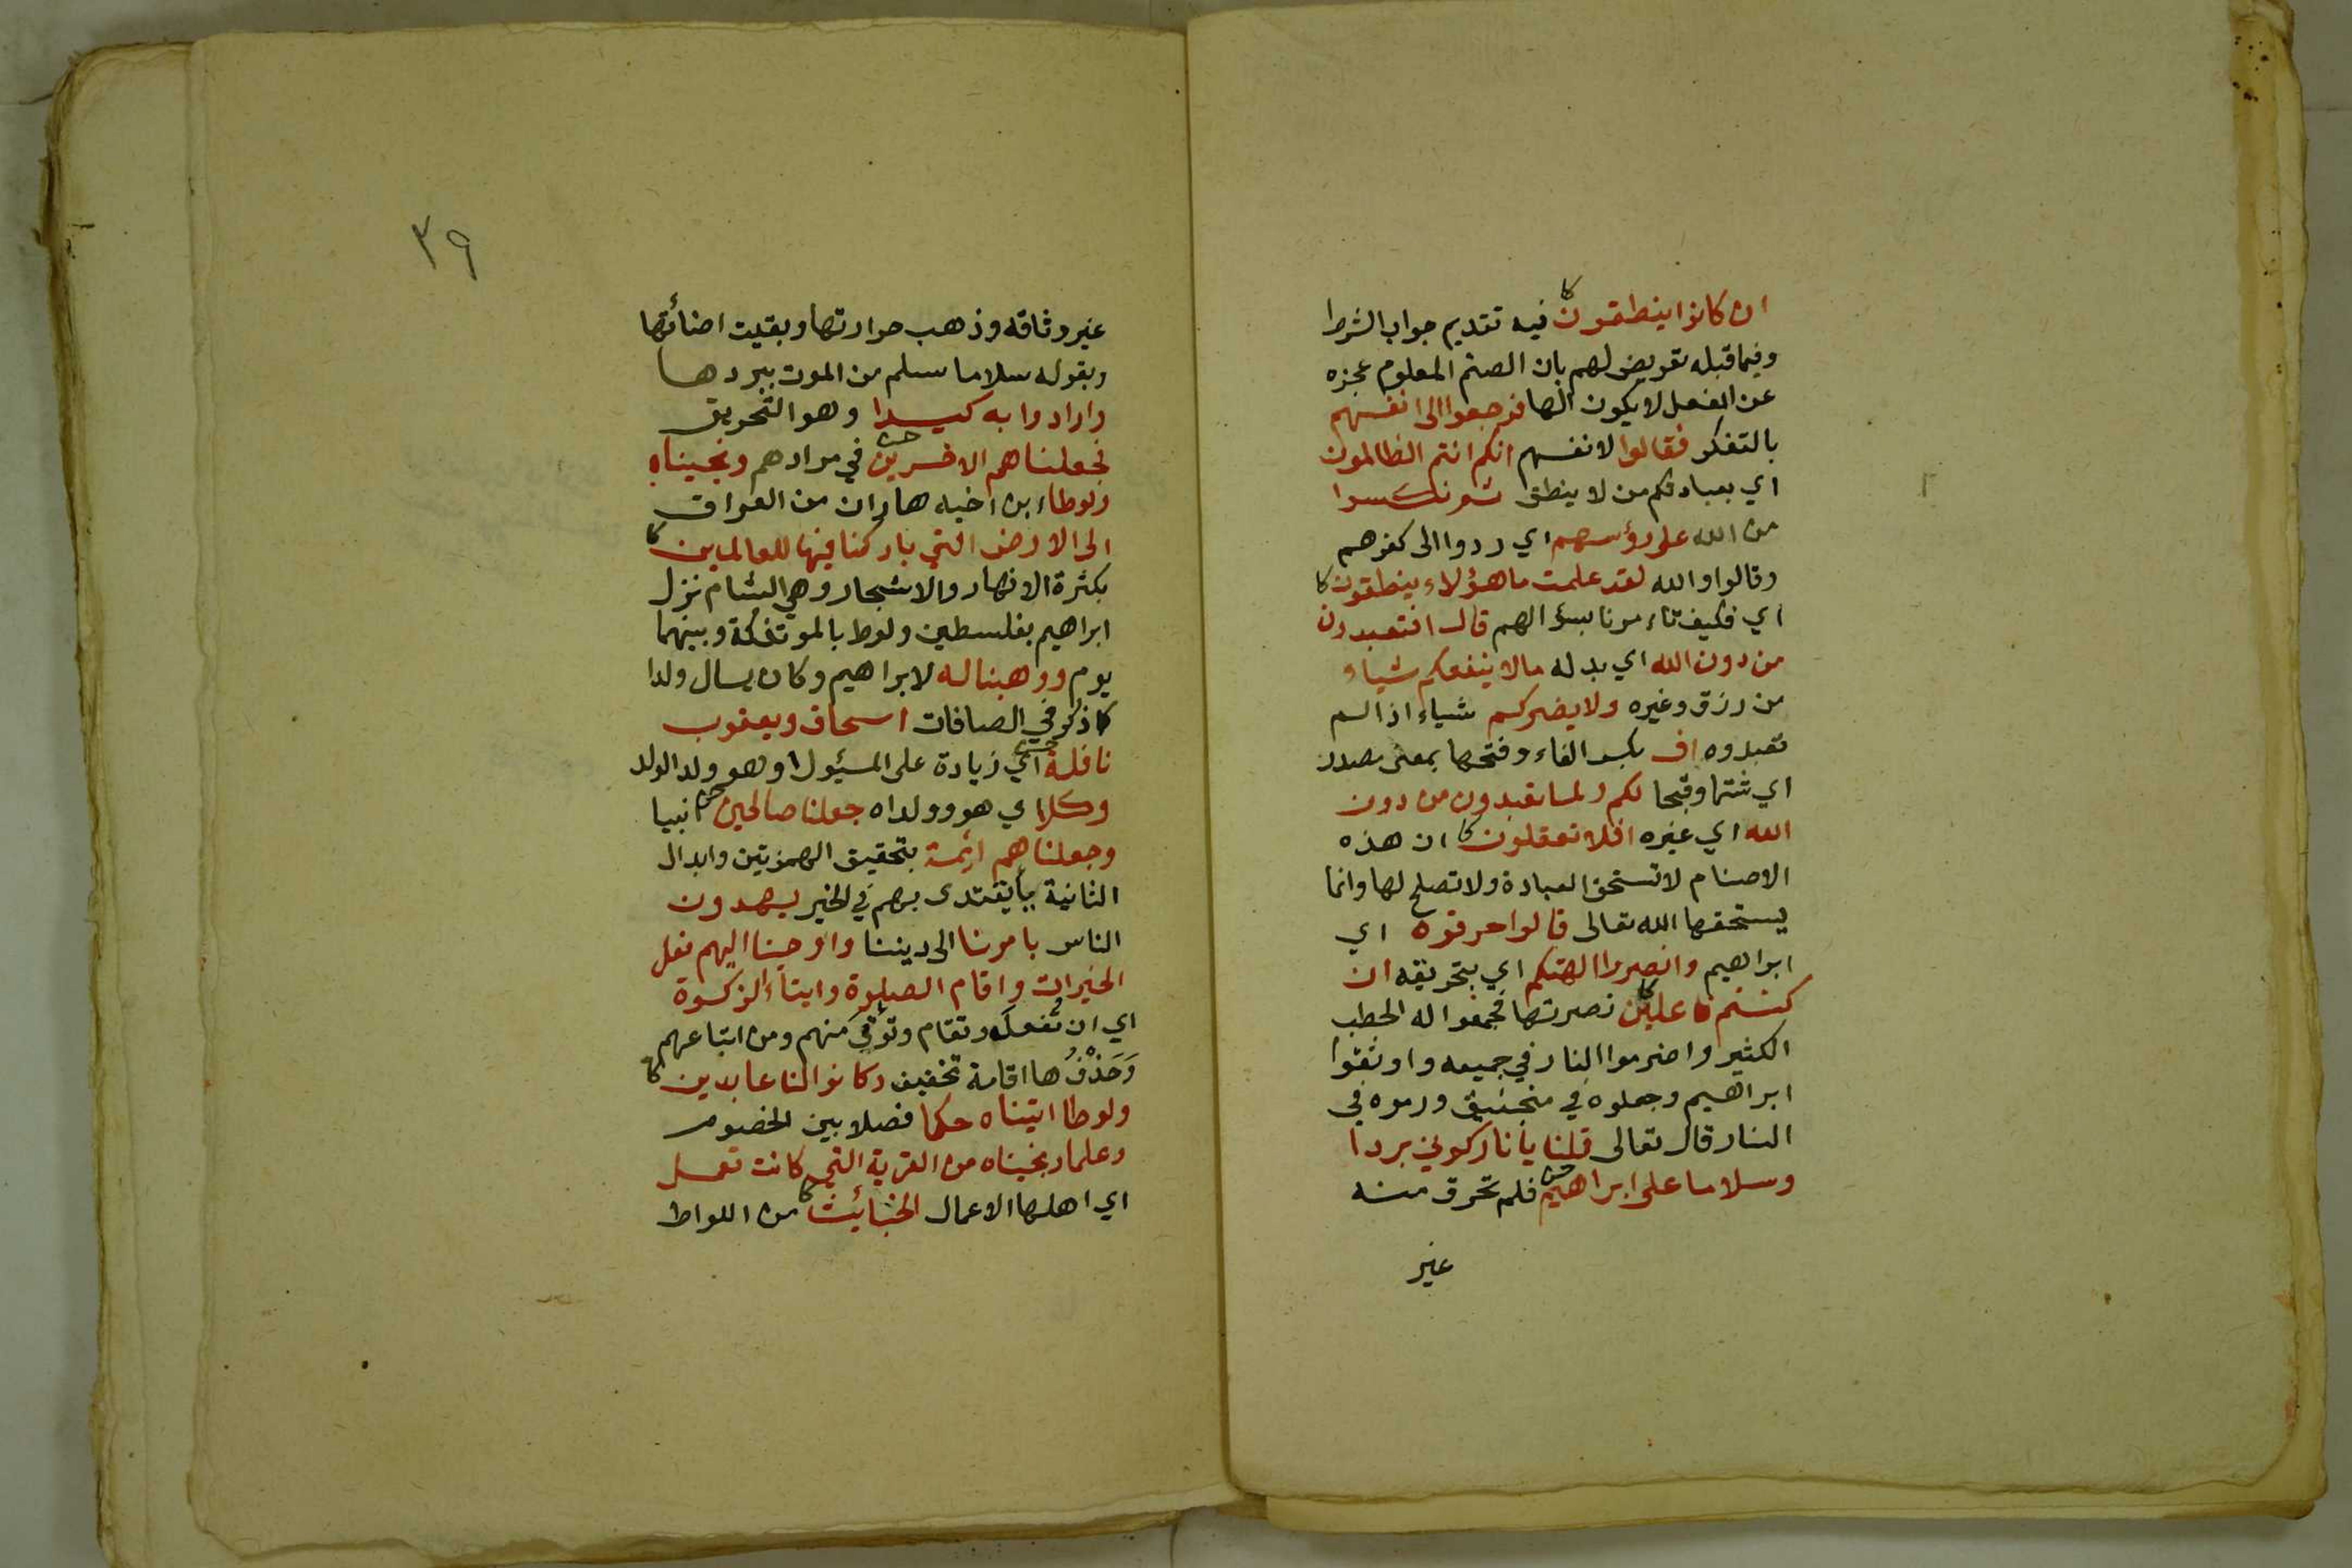 ان كانوا ينطقون كا فيه تقديم جواب الشرط
وفيما قبله تعريض لهم بان الصنم المعلوم عجزه
عن الفعل لا يكون الها فرجعوا الى انفسهم
بالتفكر فقالوا لانفسهم انكم انتم الظالمون
اي بعبادتكم من لا ينطق ثم نكسوا
من الله على رؤسهم اي ردوا الى كفرهم
وقالوا والله لقد علمت ما هؤلاء ينطقون كا
اي فكيف تاءمرنا بسؤالهم قال افتعبدون
من دون الله اي بدله ما لا ينفعكم شياء
من رزق وغيره ولا يضركم شياء اذا لم
تعبدوه اف بكسر الفاء وفتحها بمعنى مصدر
اي نتنا وقبحا لكم ولما تعبدون من دون
الله اي غيره افلا تعقلون كا ان هذه
الاصنام لا تستحق العبادة ولا تصلح لها وانما
يستحقها الله تعالى قالوا حرقوه اي
ابراهيم وانصروا الهتكم اي بتحريقه ان
كنتم فاعلين كا نصرتها فجمعوا له الحطب
الكثير واضرموا النار في جميعه واوثقوا
ابراهيم وجعلوه في منجنيق ورموه في
النار قال تعالى قلنا يا نار كوني بردا
وسلاما على ابراهيم فلم تحرق منه
غير
٣٩
غير وثاقه وذهب حرارتها وبقيت اضائتها
وبقوله سلاما سلم من الموت ببردها
وارادوا به كيدا وهو التحريق
فجعلناهم الاخسرين في مرادهم ونجيناه
ولوطا ابن اخيه هاران من العراق
الى الارض التي باركنا فيها للعالمين كا
بكثرة الانهار والاشجار وهي الشام نزل
ابراهيم بفلسطين ولوط بالموتفكة وبينهما
يوم ووهبنا له لابراهيم وكان يسال ولدا
كما ذكر في الصافات اسحاق ويعقوب
نافلة اي زيادة على المسئول او هو ولد الولد
وكلا اي هو وولداه جعلنا صالحين انبيا
وجعلناهم ائمة بتحقيق الهمزتين وابدال
الثانية ياء يقتدى بهم في الخير يهدون
الناس بامرنا الى ديننا واوحينا اليهم فعل
الخيرات واقام الصلوة وايتاء الزكوة
اي ان تُفعل وتقام وتؤتي منهم ومن اتباعهم
وَحَذْفُ هاء اقامة تخفيف وكانوا لنا عابدين كا
ولوطا اتيناه حكما فصلا بين الخصوم
وعلما ونجيناه من القرية التي كانت تعمل
اي اهلها الاعمال الخبائث كا من اللواط